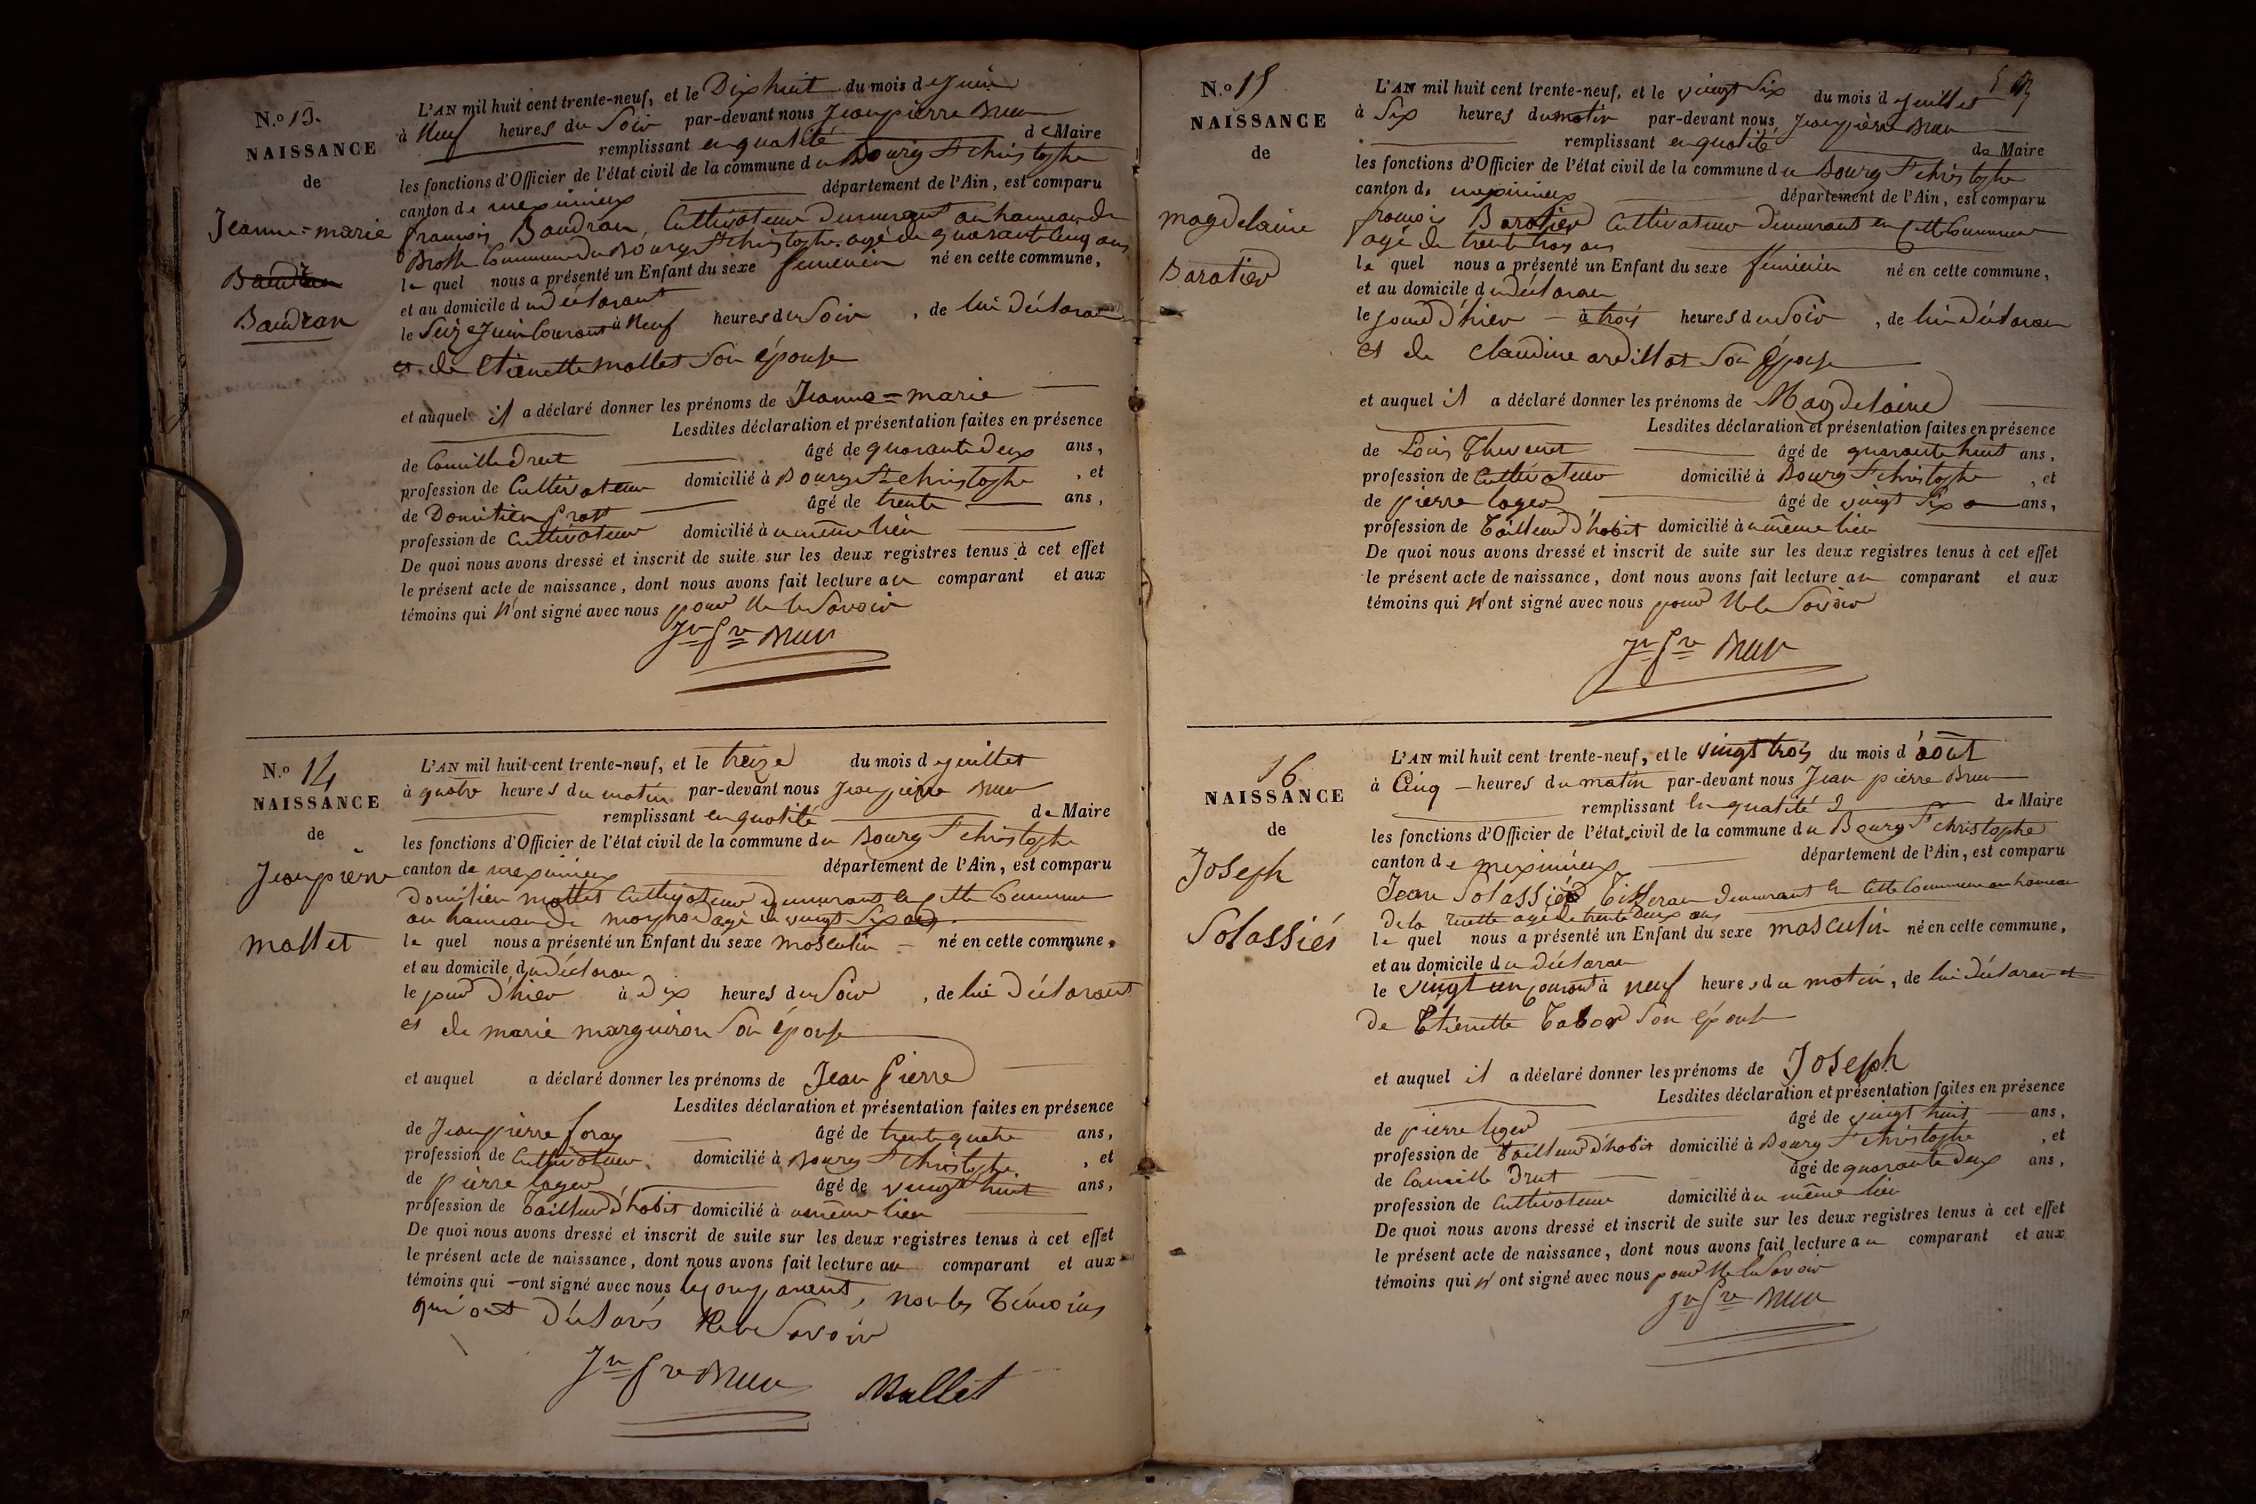 N.o 13.
NAISSANCE
de
Jeanne=marie
Baudran
Baudran
L'AN mil huit cent trente-neuf, et le Dix huit du mois de Juin
à Neuf heures du Soir par-devant nous Jean pierre Brun
remplissant en qualité de Maire
les fonctions d'Officier de l'état civil de la commune du Bourg St christophe
canton de meximieux département de l'Ain, est comparu
francois Baudran, Cultivateur demeurant au hameau de
Commune du Bourg St christophe. agé de quarant Cinq ans
le quel nous a présenté un Enfant du sexe feminin né en cette commune,
et au domicile du déclarant
le Seize Juin Courant à Neuf heures du Soir, de lui déclarant
et de Etienette mollet Son épouse
et auquel il a déclaré donner les prénoms de Jeanne=marie
Lesdites déclaration et présentation faites en présence
de Camille drut âgé de quarante deux ans,
profession de Cultivateur domicilié à Bourg St christophe, et
de Domitien âgé de trente ans,
profession de Cultivateur domicilié au même lieu
De quoi nous avons dressé et inscrit de suite sur les deux registres tenus à cet effet
le présent acte de naissance, dont nous avons fait lecture au comparant et aux
témoins qui n'ont signé avec nous pour Ne le Savoir
Jn Pre Brun
N.o 14
NAISSANCE
de
Jean pierre
mollet
L'AN mil huit cent trente-neuf, et le treize du mois de juillet
à quatre heures du matin par-devant nous Jean pierre Brun
remplissant en qualité de Maire
les fonctions d'Officier de l'état civil de la commune du Bourg St christophe
canton de meximieux département de l'Ain, est comparu
Domitien mollet Cultivateur demeurant en cette Commune
au hameau de agé de vingt Six ans
le quel nous a présenté un Enfant du sexe masculin né en cette commune,
et au domicile du déclaran
le jour d'hier à dix heures du Soir, de lui déclarant
et de marie marguiron Son épouse
et auquel a déclaré donner les prénoms de Jean Pierre
Lesdites déclaration et présentation faites en présence
de Jean pierre foray âgé de trente quatre ans,
profession de Cultivateur domicilié à Bourg St christophe, et
de pierre loger âgé de vingt huit ans,
profession de tailleur d'habit domicilié au même lieu
De quoi nous avons dressé et inscrit de suite sur les deux registres tenus à cet effet
le présent acte de naissance, dont nous avons fait lecture au comparant et aux
témoins qui ont signé avec nous le comparent, non les témoins
qui ont déclarés Ne le Savoir
Jn Pre Brun Mollet
N.o 15
NAISSANCE
de
magdelaine
Baratier
L'AN mil huit cent trente-neuf, et le vingt Six du mois de juillet
à Six heures du matin par-devant nous Jean pierre Brun
remplissant en qualité de Maire
les fonctions d'Officier de l'état civil de la commune du Bourg St christophe
canton de meximieux département de l'Ain, est comparu
francois Baratier Cultivateur demeurant en Cette Commune
agé de trente trois ans
le quel nous a présenté un Enfant du sexe feminin né en cette commune,
et au domicile du déclaran
le jour d'hier à trois heures du Soir, de lui déclaran
et de claudine ardillat Son épouse
et auquel il a déclaré donner les prénoms de Magdelaine
Lesdites déclaration et présentation faites en présence
de Louis Thevenet âgé de quarante huit ans,
profession de Cultivateur domicilié à Bourg St christophe, et
de pierre loger âgé de vingt Six ans,
profession de tailleur d'habit domicilié au même lieu
De quoi nous avons dressé et inscrit de suite sur les deux registres tenus à cet effet
le présent acte de naissance, dont nous avons fait lecture au comparant et aux
témoins qui n'ont signé avec nous pour Ne le Savoir
Jn Pre Brun
16
NAISSANCE
de
Joseph
Solassiés
L'AN mil huit cent trente-neuf, et le vingt trois du mois d'août
à Cinq heures du matin par-devant nous Jean pierre Brun
remplissant en qualité de Maire
les fonctions d'Officier de l'état civil de la commune du Bourg St christophe
canton de meximieux département de l'Ain, est comparu
Jean Solassiés Tisseran demeurant en Cette Commune au hameau
de la agé de trente deux ans
le quel nous a présenté un Enfant du sexe masculin né en cette commune,
et au domicile du déclaran
le vingt un Courant à neuf heures du matin, de lui déclaran et
de Etienette Tabor Son épouse
et auquel il a déclaré donner les prénoms de Joseph
Lesdites déclaration et présentation faites en présence
de pierre loger âgé de vingt huit ans,
profession de tailleur d'habit domicilié à Bourg St christophe, et
de Camille Drut âgé de quarante deux ans,
profession de Cultivateur domicilié au même lieu
De quoi nous avons dressé et inscrit de suite sur les deux registres tenus à cet effet
le présent acte de naissance, dont nous avons fait lecture au comparant et aux
témoins qui n'ont signé avec nous pour Ne le Savoir
Jn Pre Brun